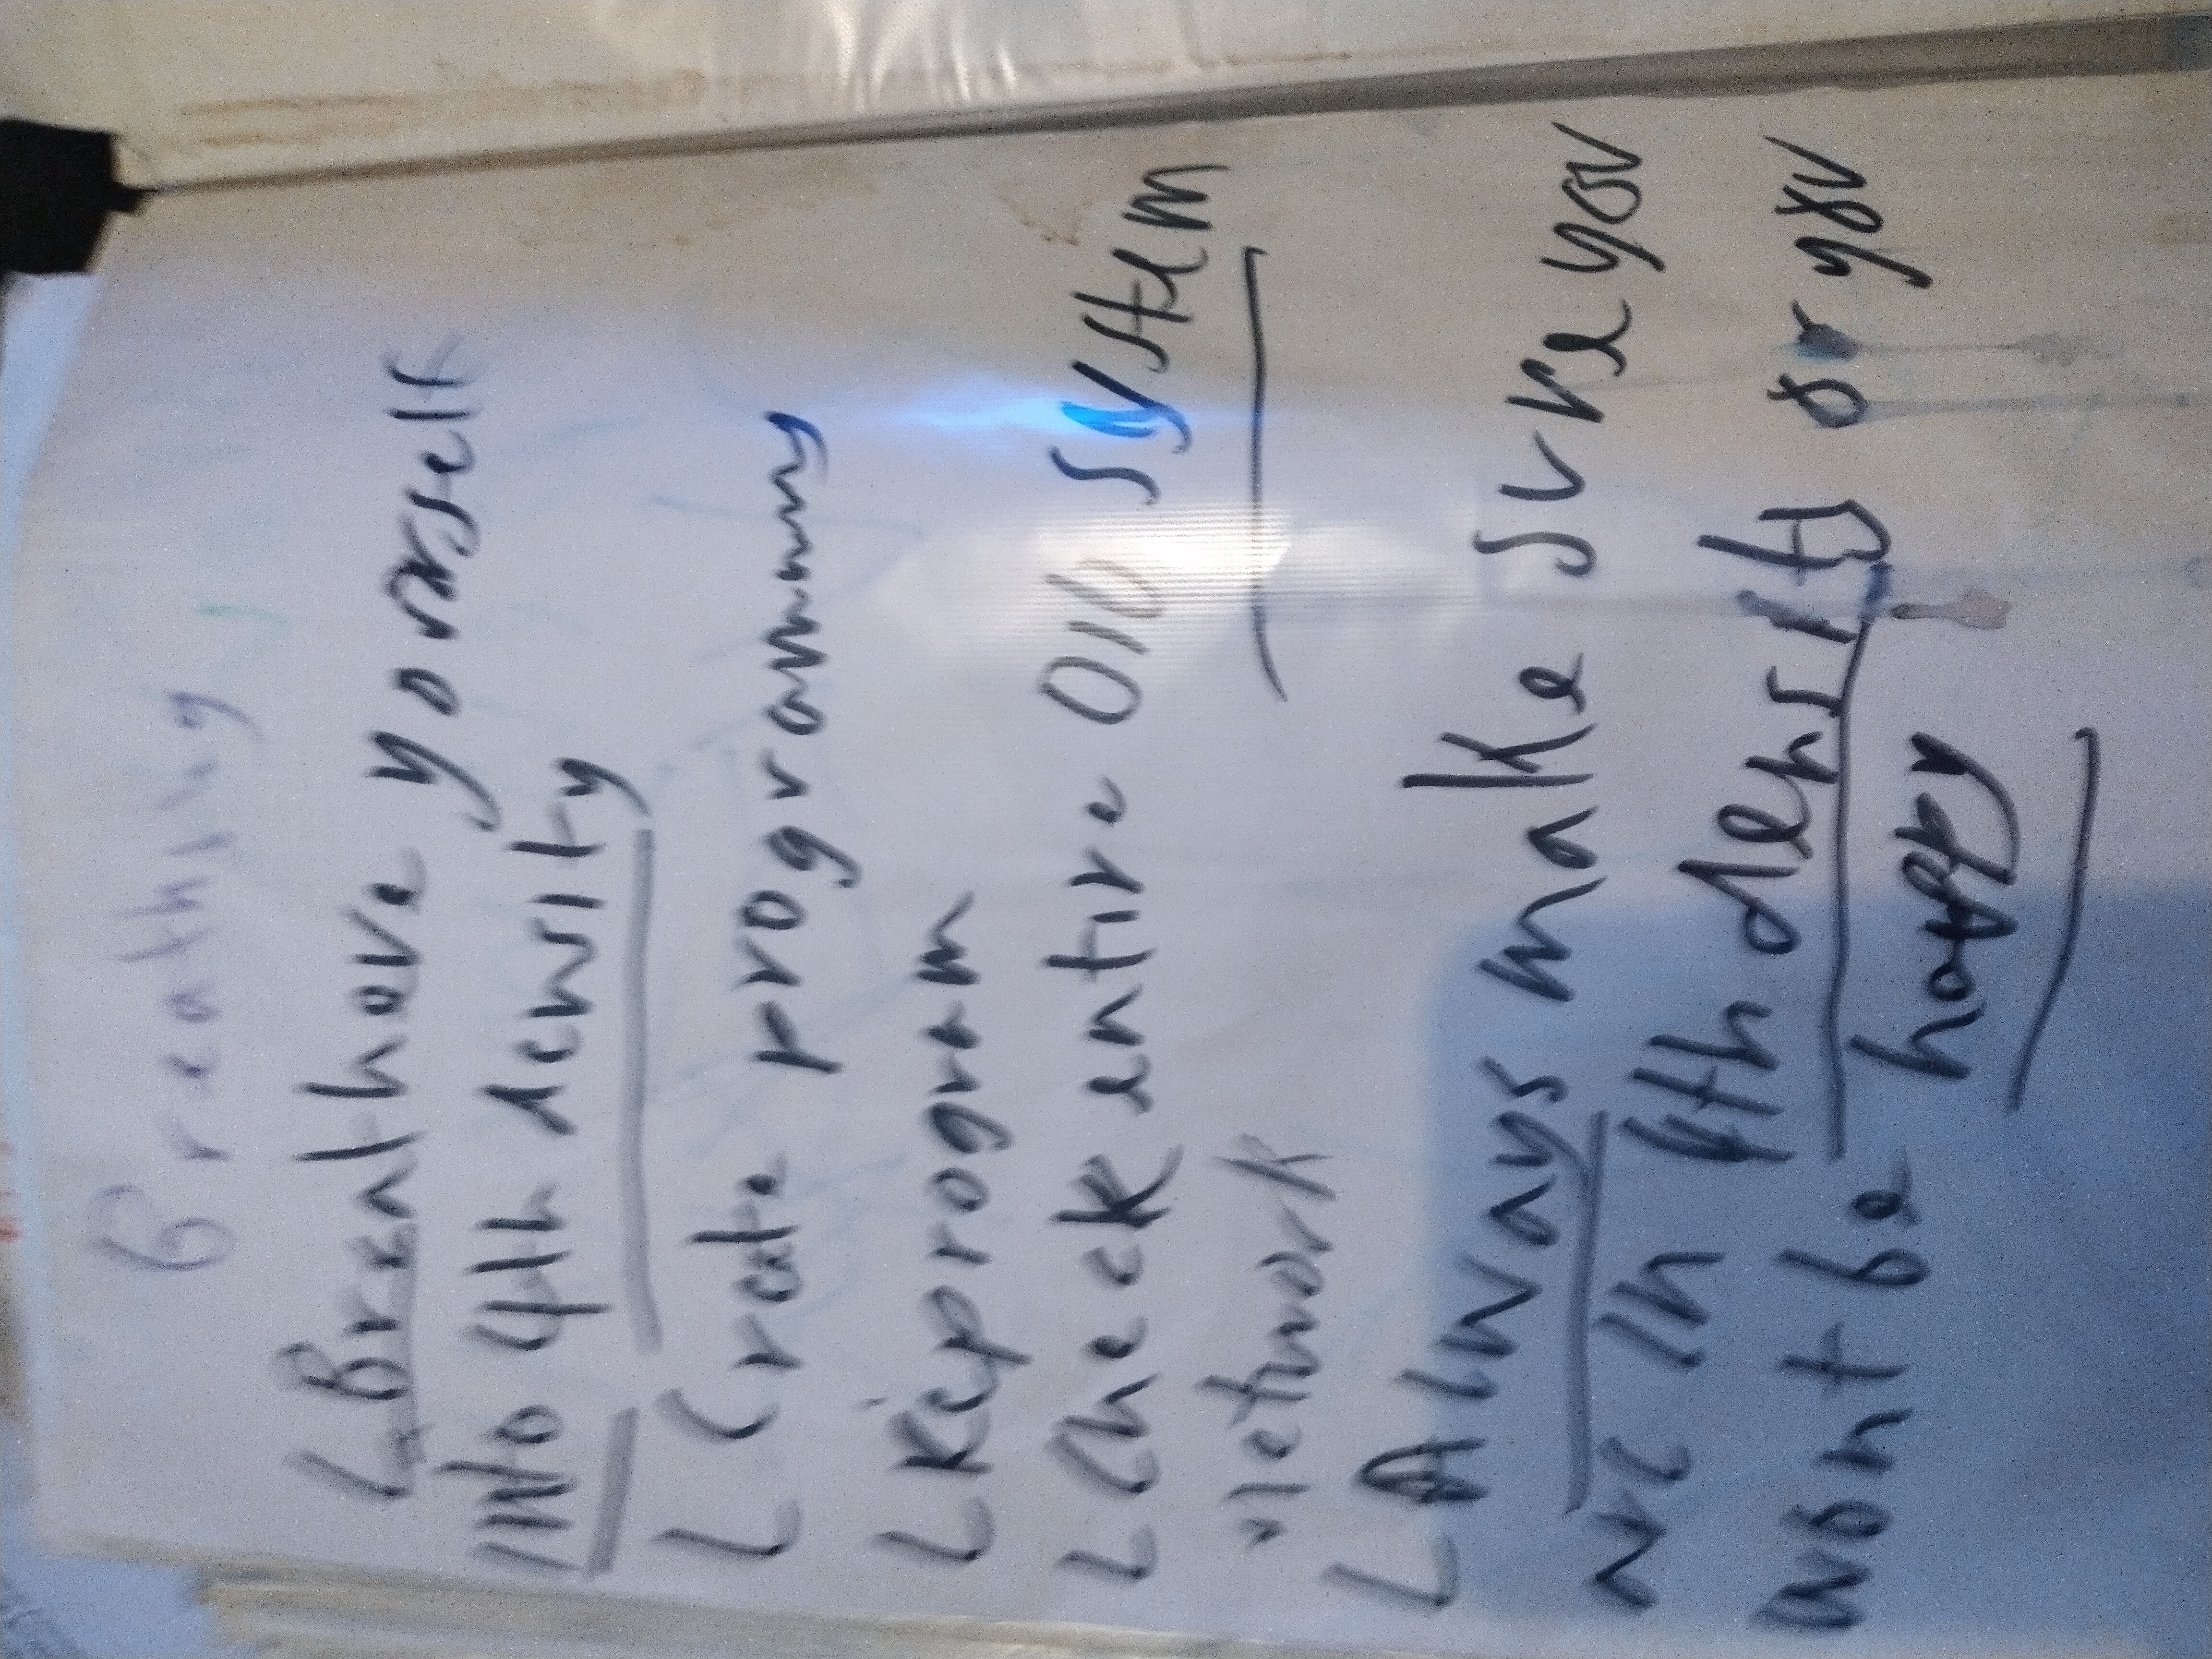 Breathing
L Breathove yourself
INto 4th density
L Create programmy
L Keiprogram
L Check entire OID system
network
L Always make sure you
wre in 4th density or you
wont be happy